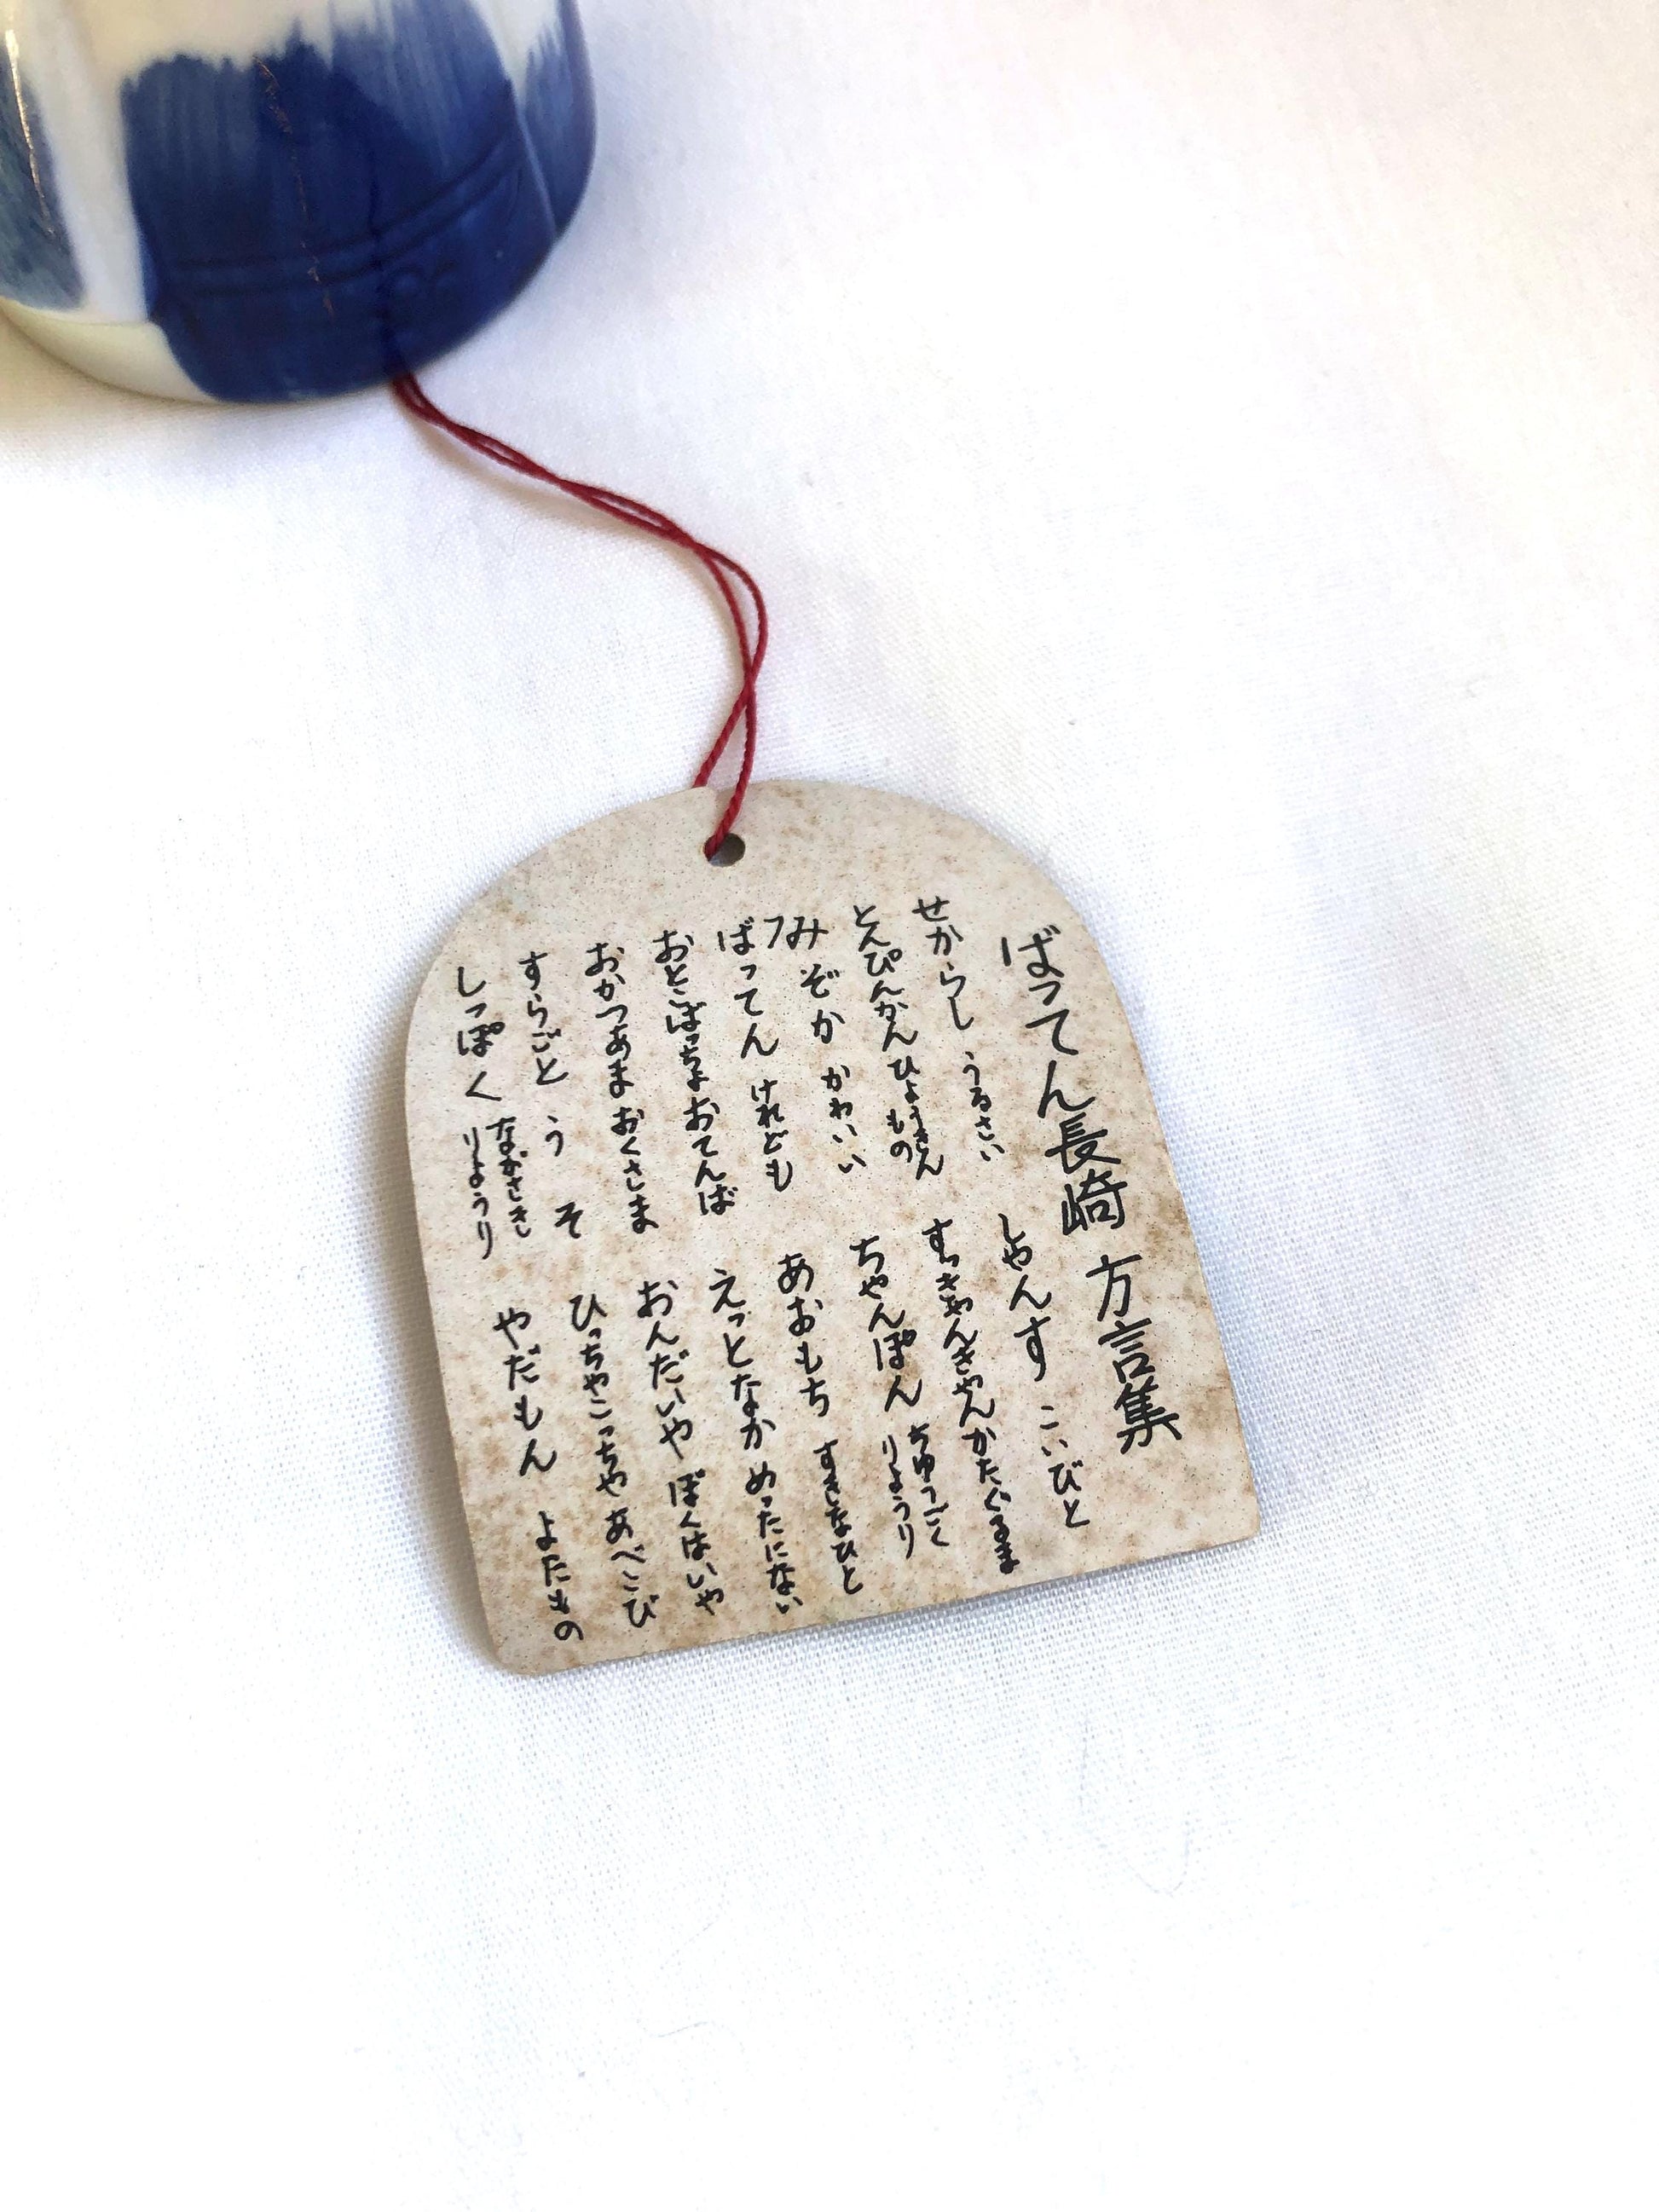 ばってん長崎方言集
せからし うるさい
とんぴんかん ひょうきんもの
みぞか かわいい
ばってん けれども
おとこばっちょ おてんば
おかつあま おくさま
すらごと うそ
しっぽく ながさきりょうり
しゃんす こいびと
すっきゃんきゃん かたぐるま
ちゃんぽん ちゅうごくりょうり
あおもち すきなひと
えっとなか めったにない
おんだいや ぼくはいや
ひっちゃこっちゃ あべこび
やだもん よたもの